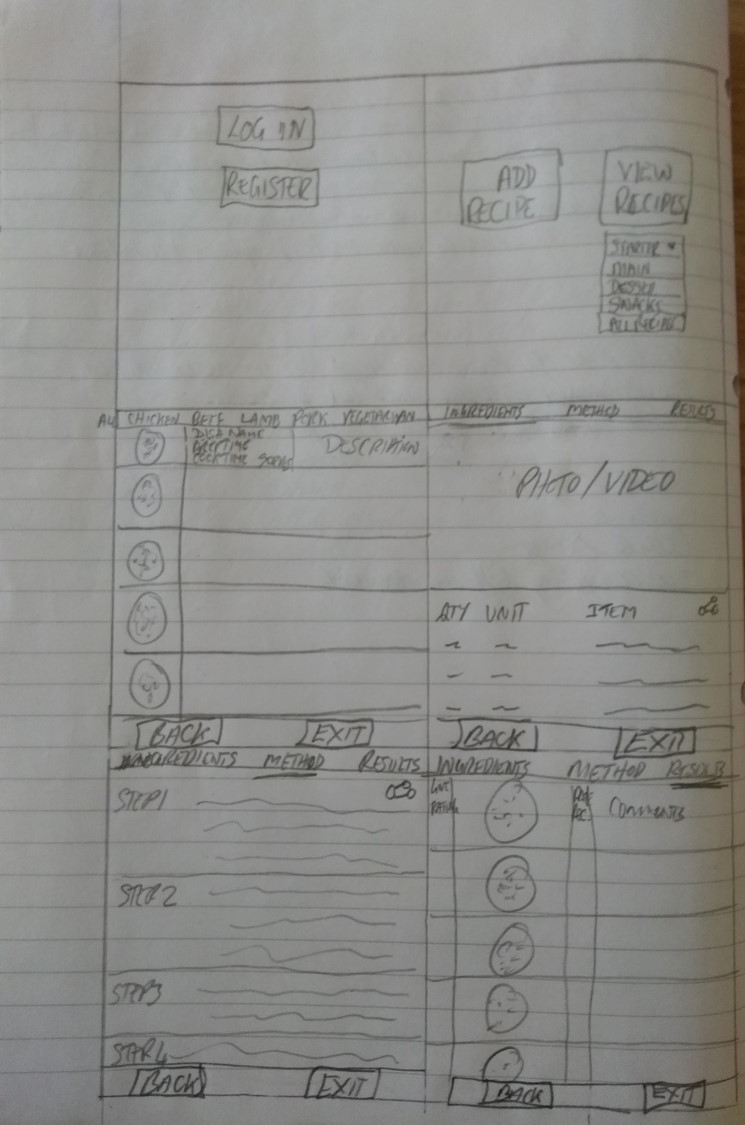 LOG IN
REGISTER
ADD
RECIPE
VIEW
RECIPES
STARTER
MAIN
DESSERT
SNACKS
ALL RECIPES
ALL CHICKEN BEEF LAMB PORK VEGETARIAN
DISH NAME
COOK TIME SERVES
DESCRIPTION
BACK EXIT
INGREDIENTS METHOD RESULTS
PHOTO/VIDEO
QTY UNIT ITEM
BACK EXIT
INGREDIENTS METHOD RESULTS
STEP 1
STEP 2
STEP 3
BACK EXIT
INGREDIENTS METHOD RESULTS
RATING
COMMENTS
BACK EXIT